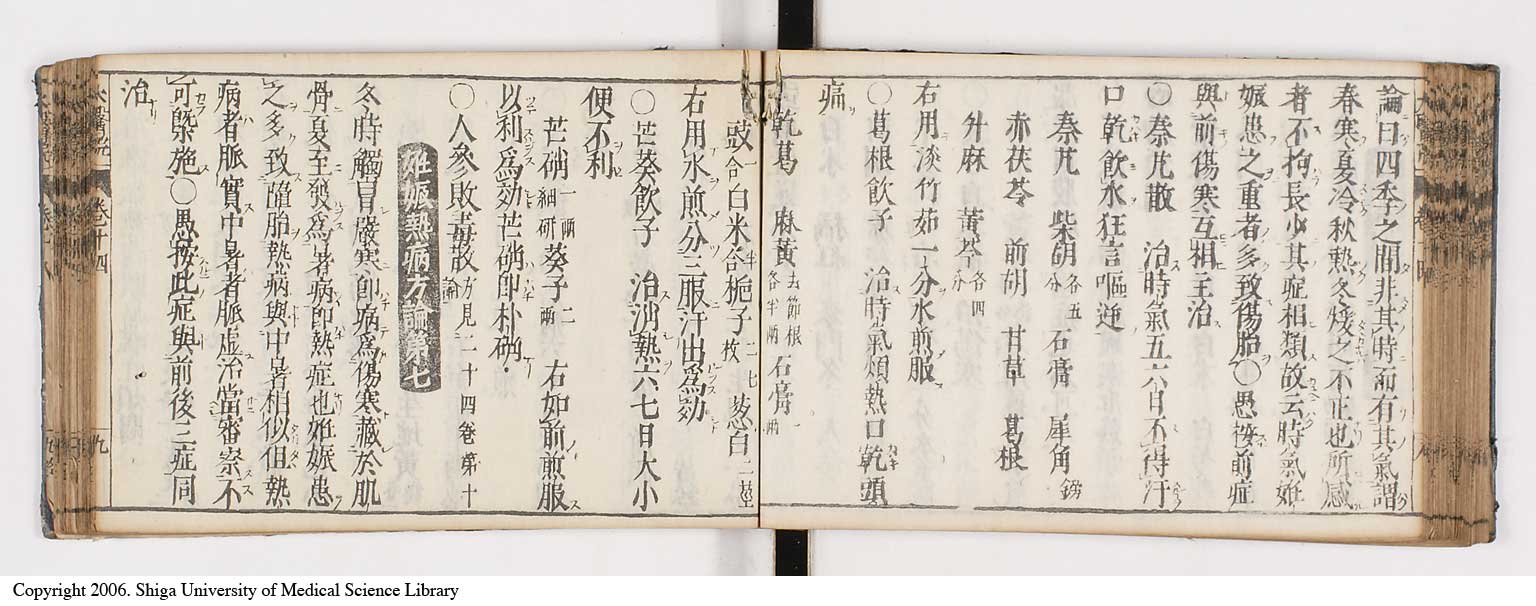 論曰四季之間非其時而有其氣謂
春寒夏冷秋熱冬煖之不正也所感
者不拘長少其症相類故云時氣姙
娠患之重者多致傷胎〇愚按前症
與前傷寒互相主治
〇秦艽散 治時氣五六日不得汗
口乾飲水狂言嘔逆
秦艽 柴胡各五分 石膏 犀角鎊
赤茯苓 前胡 甘草 葛根
升麻 黃芩各四分
右用淡竹茹一分水煎服
〇葛根飲子 治時氣煩熱口乾頭
痛
乾葛 麻黃去節根各半兩 石膏一兩
豉一合白米半合梔子二七枚 葱白二莖
右用水煎分三服汗出為効
〇芒葵飲子 治消熱六七日大小
便不利
芒硝一兩細研 葵子二兩 右如前煎服
以利為効芒硝即朴硝
〇人參敗毒散方見二十四卷第十論
姙娠熱病方論第七
冬時觸冒嚴寒即病為傷寒藏於肌
骨夏至發為暑病即熱症也姙娠患
之多致墮胎熱病與中暑相似但熱
病者脈實中暑者脈虛治當審察不
可槩施〇愚按此症與前後三症同
治
卷十四
九
Copyright 2006. Shiga University of Medical Science Library